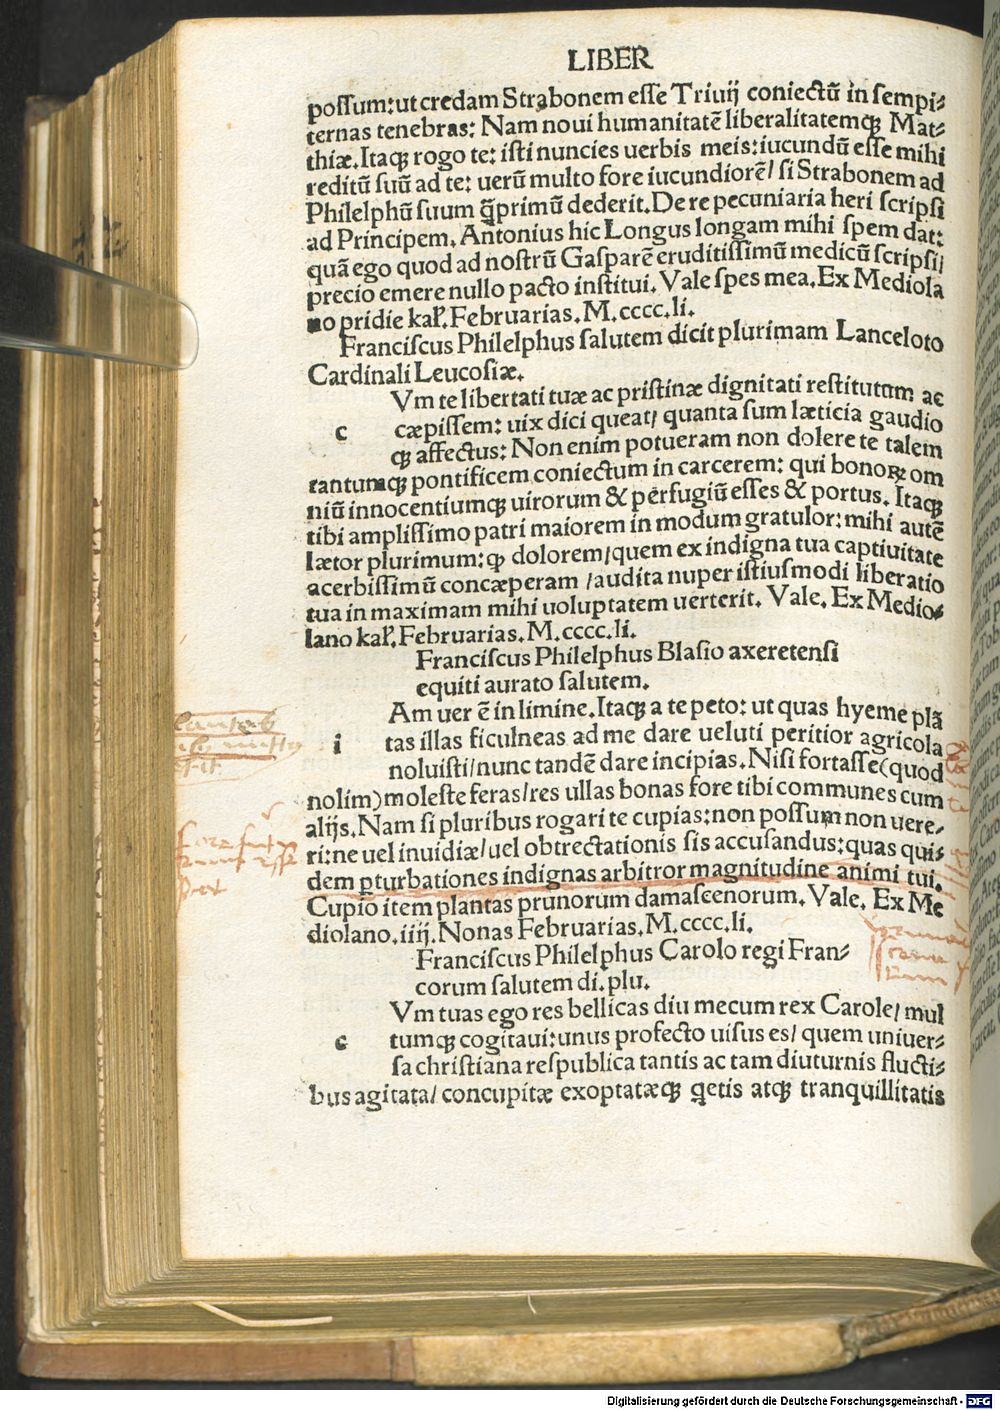 LIBER
possum:ut credam Strabonem esse Triuij coniectū in sempi⸗
ternas tenebras: Nam noui humanitatē liberalitatemqȝ Mat⸗
thiæ. Itaqȝ rogo te: isti nuncies uerbis meis:iucundū esse mihi
reditū suū ad te: uerū multo fore iucundiorē/ si Strabonem ad
Philelphū suum q̄primū dederit. De re pecuniaria heri scripsi
ad Principem. Antonius hic Longus longam mihi spem dat:
quā ego quod ad nostrū Gasparē eruditissimū medicū scripsi/
precio emere nullo pacto institui. Vale spes mea. Ex Mediola
no pridie kal'. Februarias. M.cccc.li.
Franciscus Philelphus salutem dicit plurimam Lanceloto
Cardinali Leucosiæ.
Vm te libertati tuæ ac pristinæ dignitati restitutum ac
c cæpissem: uix dici queat/ quanta sum læticia gaudio
qȝ affectus: Non enim potueram non dolere te talem
tantumqȝ pontificem coniectum in carcerem: qui bonoꝝ om
niū innocentiumqȝ uirorum & perfugiū esses & portus. Itaqȝ
tibi amplissimo patri maiorem in modum gratulor: mihi autē
lætor plurimum: ꝙ dolorem/quem ex indigna tua captiuitate
acerbissimū concæperam /audita nuper istiusmodi liberatio
tua in maximam mihi uoluptatem uerterit. Vale. Ex Medio⸗
lano kal'. Februarias. M.cccc.li.
Franciscus Philelphus Blasio axeretensi
equiti aurato salutem.
Am uer ē in limine. Itaqȝ a te peto: ut quas hyeme plā
i tas illas ficulneas ad me dare ueluti peritior agricola
noluisti/nunc tandē dare incipias. Nisi fortasse(quod
nolim)moleste feras/res ullas bonas fore tibi communes cum
alijs. Nam si pluribus rogari te cupias:non possum non uere⸗
ri:ne uel inuidiæ/uel obtrectationis sis accusandus:quas qui⸗
dem ꝑturbationes indignas arbitror magnitudine animi tui.
Cupio item plantas prunorum damascenorum. Vale. Ex Me
diolano.iiij. Nonas Februarias. M.cccc.li.
Franciscus Philelphus Carolo regi Fran⸗
corum salutem di.plu.
Vm tuas ego res bellicas diu mecum rex Carole/ mul
c tumqȝ cogitaui:unus profecto uisus es/ quem uniuer⸗
sa christiana respublica tantis ac tam diuturnis flucti⸗
bus agitata/ concupitæ exoptatæqȝ q̇etis atqȝ tranquillitatis
Digitalisierung gefördert durch die Deutsche Forschungsgemeinschaft - DFG